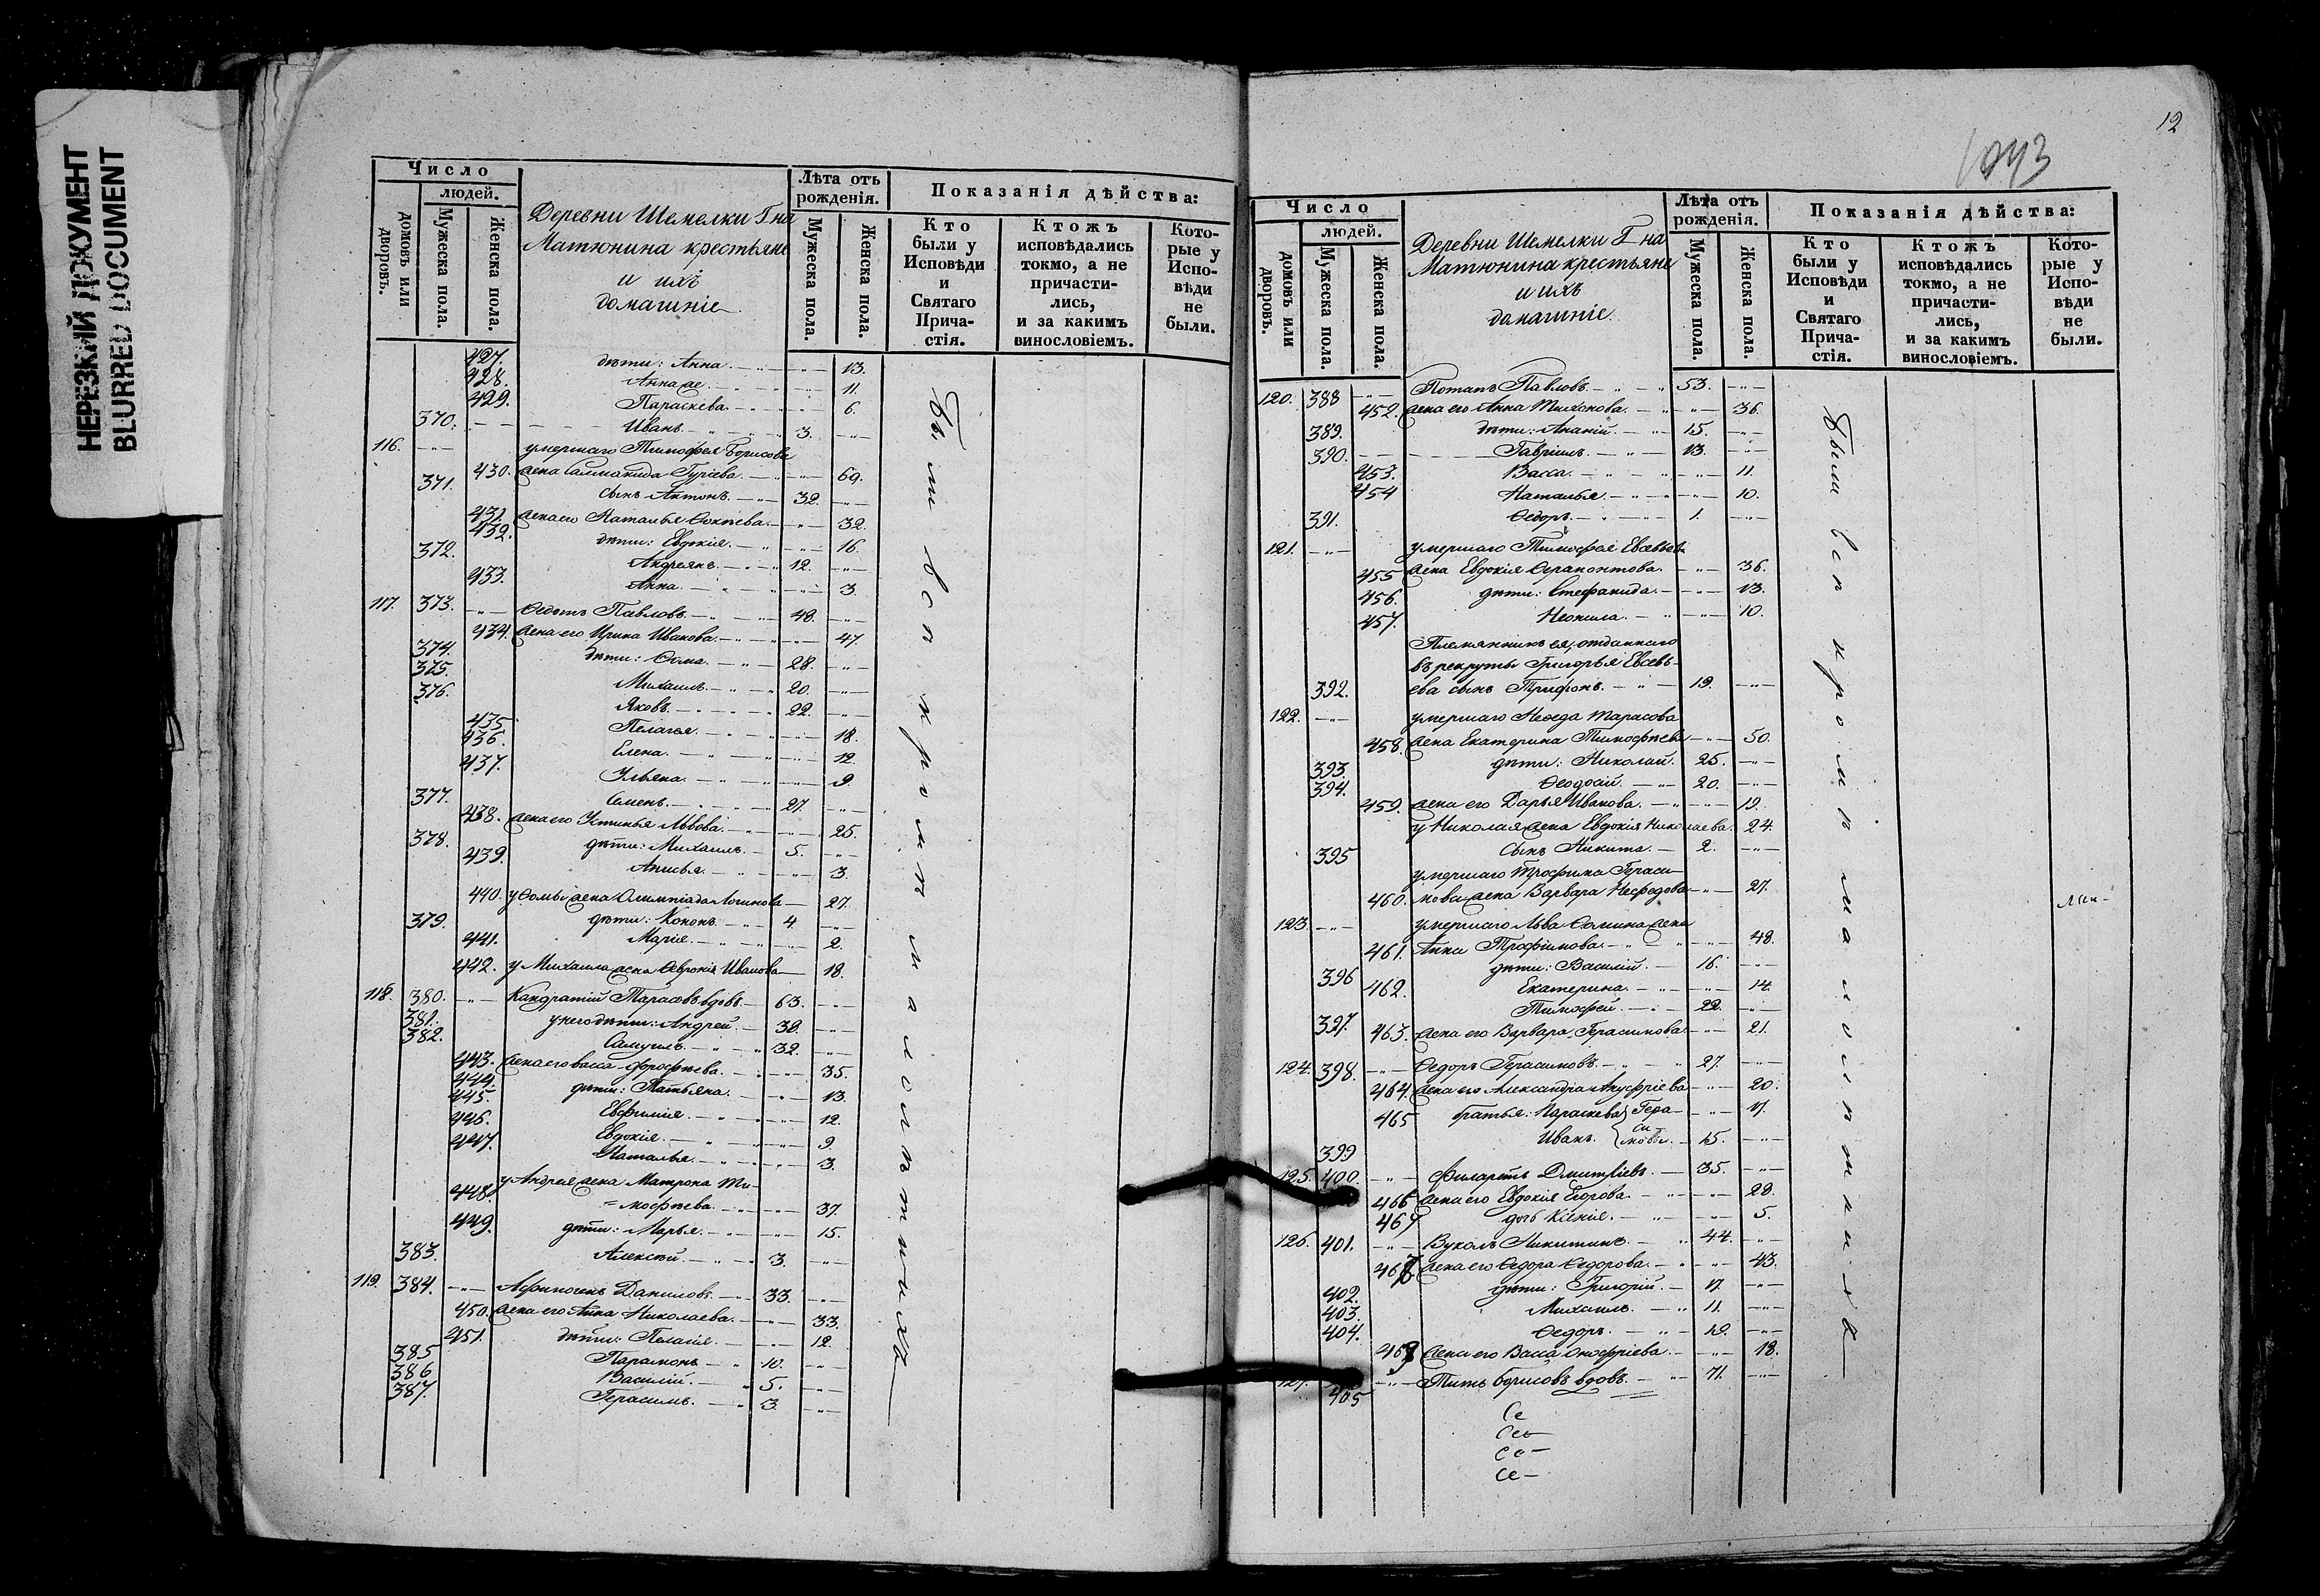 НЕРЕЗКИЙ ДОКУМЕНТ
BLURRED DOCUMENT
Число
людей.
домовъ или дворовъ.
Мужеска пола.
Женска пола.
Деревни Шемелки Гна
Матюнина крестьяне
и ихъ
домашніе
Лѣта отъ рожденія.
Мужеска пола.
Женска пола.
Показанія дѣйства:
Кто были у Исповѣди и Святаго Причастія.
Ктожъ исповѣдались токмо, а не причастились, и за какимъ винословіемъ.
Которые у Исповѣди не были.
427. дѣти: Анна. 13.
428. Анна же. 11.
429. Параскева. 6.
370. Иванъ. 3.
116. умершаго Тимофея Борисова
430. жена Саламанида Гуріева. 69.
371. сынъ Антонъ. 32.
431. жена его Наталья 32.
432. дѣти: Евдокія. 16.
372. Андреянъ. 12.
433. Анна. 3.
117. 373. Ѳедотъ Павловъ. 48.
434. жена его Ирина Иванова. 47.
374. дѣти: Ѳома. 28.
375. Михаилъ. 20.
376. Яковъ. 22.
435. Пелагея. 18.
436. Елена. 12.
437. Ульяна. 9
377. Семенъ. 27.
438. жена его Устинья Львова. 25.
378. дѣти: Михаилъ. 5.
439. Анисья. 3.
440. у Ѳомы жена Олимпіада Логинова 27.
379. дѣти: Кононъ. 4.
441. Марія. 2.
442. у Михаила жена Ѳевронія Иванова 18.
118. 380. Кандратій Тарасовъ вдовъ. 63.
381. у него дѣти: Андрей. 38.
382. Самуилъ. 32.
443. жена его Васса Дорофѣева. 35.
444. дѣти: Татьяна. 13.
445. Евфимія. 12.
446. Евдокія. 9.
447. Наталья. 3.
448. у Андрея жена Матрона Ти-
=мофѣева. 37.
449. дѣти: Марья. 15.
383. Алексѣй. 3.
119. 384. Афиногенъ Даниловъ. 33.
450. жена его Анна Николаева. 33.
451. дѣти: Пелагія. 12.
385 Парамонъ 10.
386 Василій. 5.
387. Герасимъ. 3.
Были всѣ кромѣ малолѣтнихъ
12
1043
Число
людей.
домовъ или дворовъ.
Мужеска пола.
Женска пола.
Деревни Шемелки Гна
Матюнина крестьяне
и ихъ
домашніе
Лѣта отъ рожденія.
Мужеска пола.
Женска пола.
Показанія дѣйства:
Кто были у Исповѣди и Святаго Причастія.
Ктожъ исповѣдались токмо, а не причастились, и за какимъ винословіемъ.
Которые у Исповѣди не были.
120. 388 Потапъ Павловъ. 53.
452. жена его Анна Тихонова. 36.
389. дѣти: Ананій. 15.
390. Гавріилъ. 13.
453. Васса. 11.
454 Наталья. 10.
391. Ѳедоръ. 1.
121. умершаго Тимофея Евсевьева
455 жена Евдокія Ферапонтова. 36.
456. дѣти: Стефанида. 13.
457. Неонила. 10.
Племянникъ ея, отданнаго
въ рекруты Григорья Евсевь-
392. ева сынъ Трифонъ. 19.
122. умершаго Тарасова
458. жена Екатерина Тимофѣева 50.
393. дѣти: Николай. 25.
394. Ѳеодосій. 20.
459. жена его Дарья Иванова. 19.
у Николая жена Евдокія Николаева. 24.
395 сынъ Никита. 2.
умершаго Трофима Гераси-
460. мова жена Варвара Нефедова 27.
мин-
123. умершаго Льва Ѳомина жена
461. Анна Трофимова. 48.
396 дѣти: Василій. 16.
462. Екатерина. 14.
397. Тимофей. 22.
463. жена его Варвара Герасимова. 21.
124. 398. Ѳедоръ Герасимовъ. 27.
464. жена его Александра Ануфріева 20.
465 братья: Параскева} Гера- 17.
399 Иванъ. {симовы. 15.
125. 400. Филаретъ Дмитріевъ. 35.
466 жена его Евдокія Егорова. 28.
467 дочь Ксенія. 5.
126. 401. Вуколъ Никитинъ. 44.
468 жена его Ѳедора Ѳедорова. 43.
402. дѣти: Григорій. 17.
403. Михаилъ. 11.
404. Ѳедоръ. 19.
469 жена его Васса Онофріева. 18.
127. 405 Титъ Борисовъ вдовъ. 71.
Были всѣ кромѣ малолѣтнихъ
Се
Сео
Се-
Се-